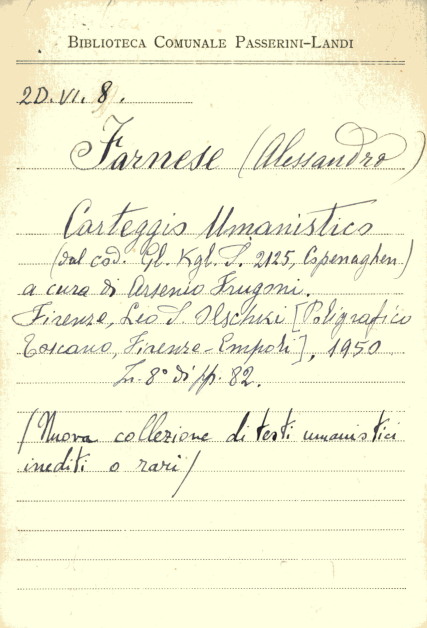 BIBLIOTECA COMUNALE PASSERINI-LANDI
2D.VI.8.
Farnese (Alessandro)
Carteggio Umanistico
(dal cod. Gl. Kgl. S. 2125, Copenaghen.)
a cura di Arsenio Frugoni.
Firenze, Leo S. Olschki [Poligrafico
Toscano, Firenze-Empoli], 1950
In. 8° di pp. 82.
/Nuova collezione di testi umanistici
inediti o rari/